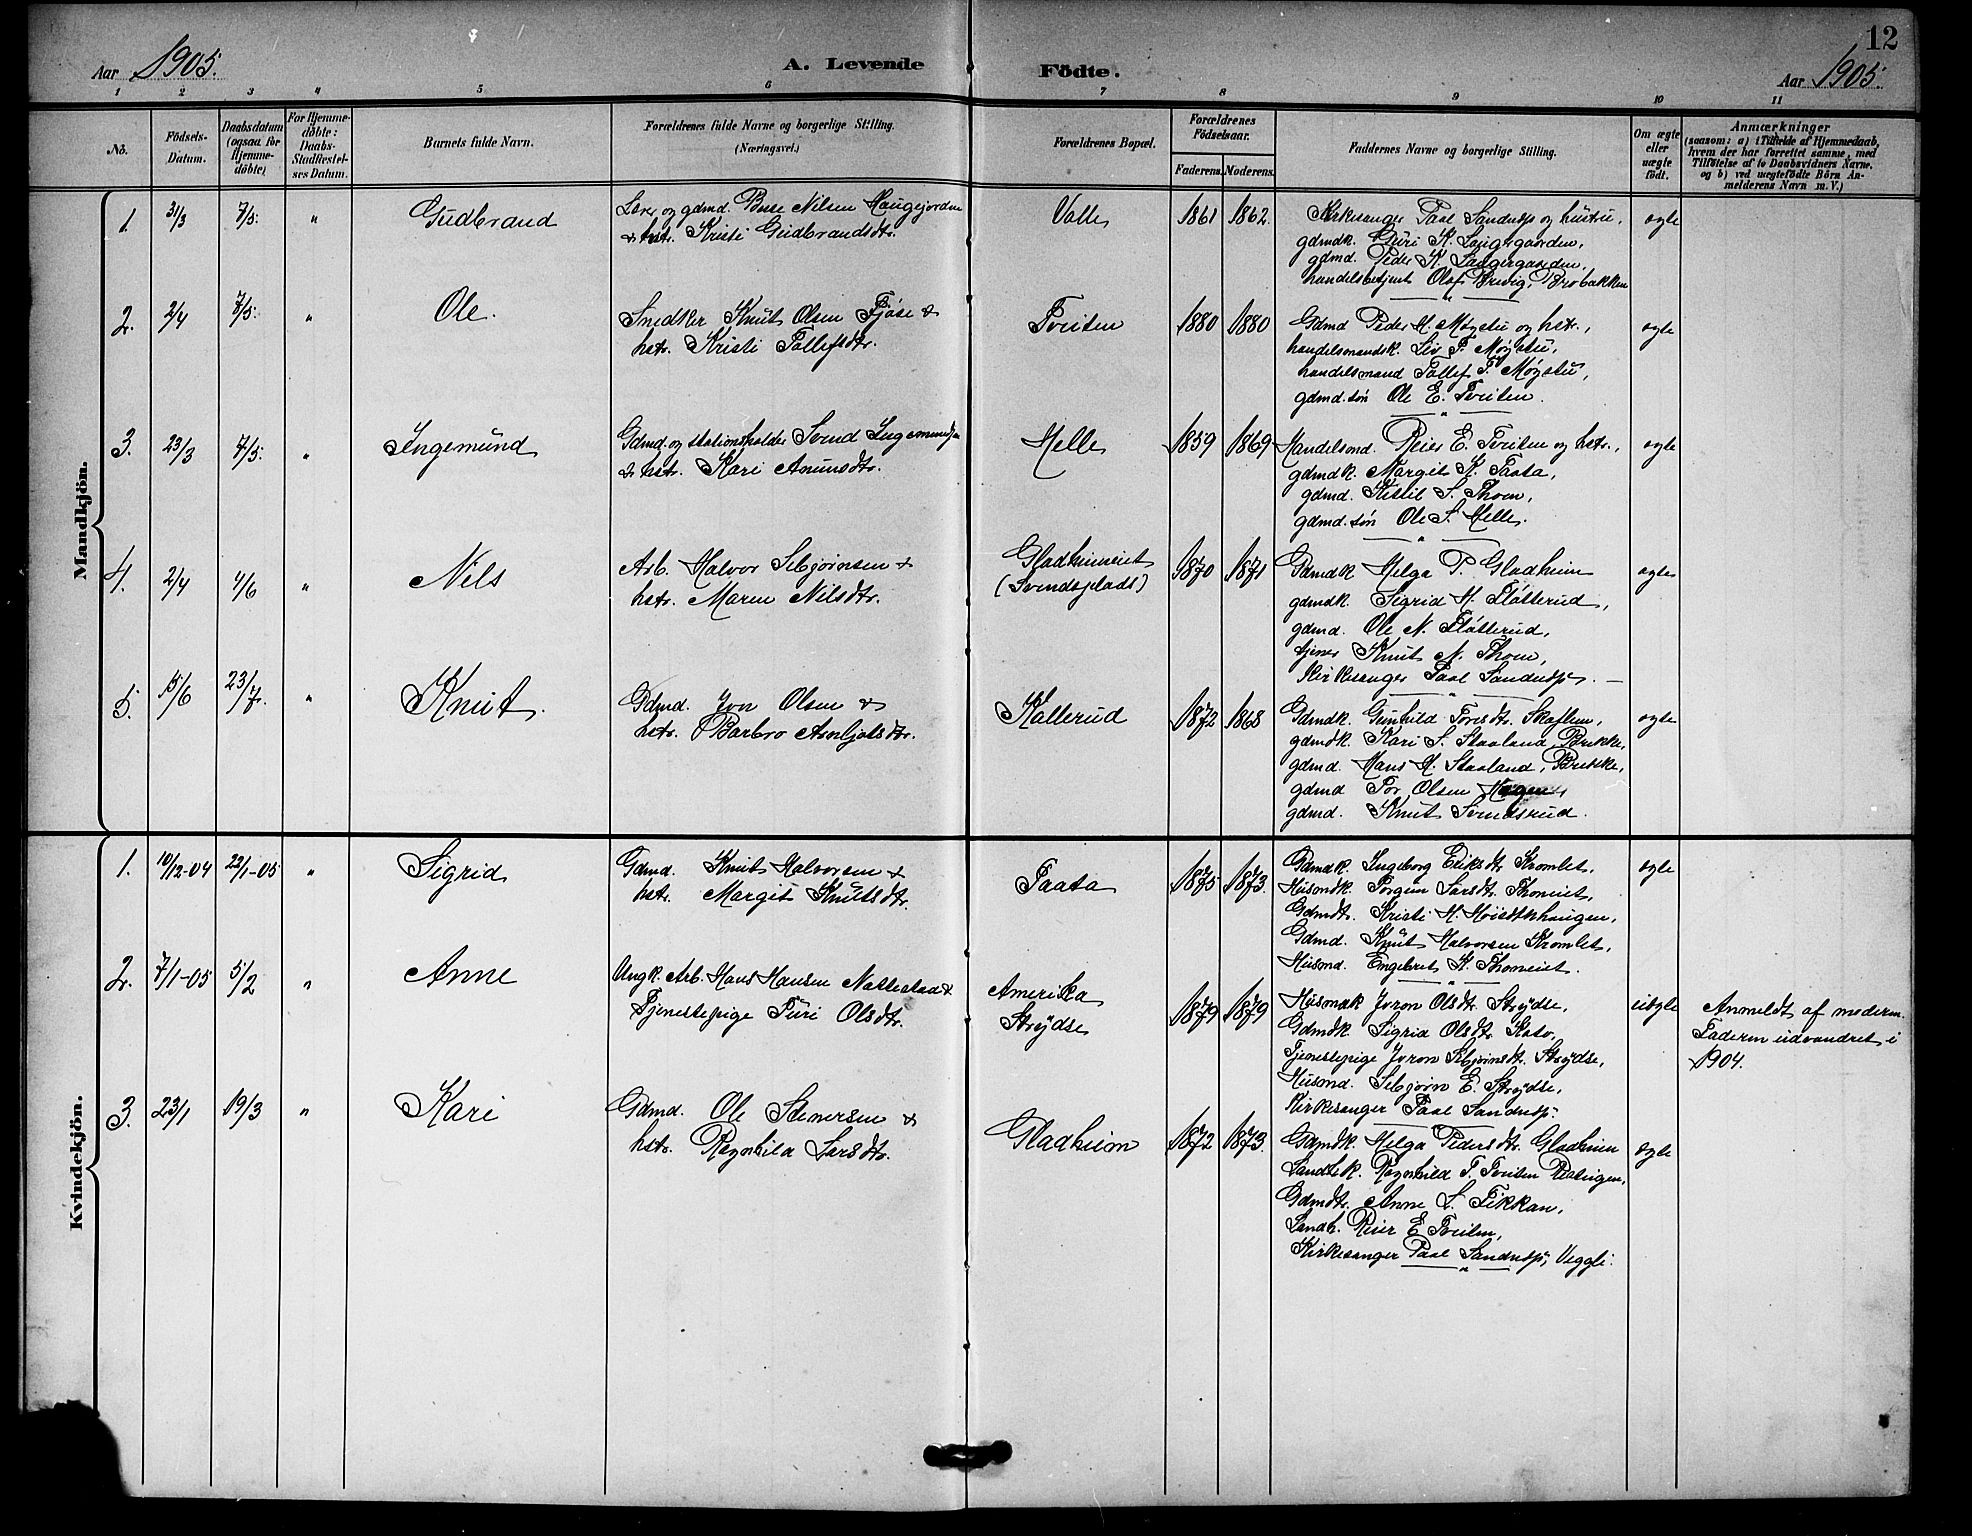 12
Aar 1905.
A. Levende Födte.
Aar 1905.
1 2 3 4 5 6 7 8 9 10 11
No.
Födsels-
Datum.
Daabsdatum
(ogsaa for
Hjemme-
döbte)
For Hjemme-
döbte:
Daabs-
Stadfæstel-
ses Datum.
Barnets fulde Navn.
Forældrenes fulde Navne og borgerlige Stilling.
(Næringsvei.)
Forældrenes Bopæl.
Forældrenes
Födselsaar.
Faderens. Moderens.
Faddernes Navne og borgerlige Stilling.
Om ægte
eller
uægte
födt.
Anmærkninger
(saasom: a) i Tilfælde af Hjemmedaab,
hvem der har forrettet samme, med
Tilföielse af to Daabsvidners Navne,
og b) ved uægtefödte Börn An-
melderens Navn m. V.)
Mandkjön.
1. 31/3 7/5. " Gudbrand
Lærer og gdmd. Nilsen Haugejorden
& hstr. Kristi Gudbrandsdtr.
Valle 1861 1862
Kirkesanger Paal Sandnesp og hustru,
gdmdk. Guri K. Langergaarden,
gdmd. Peder K. Langergaarden,
handelsbetjent Olaf Brevig, Brobakken
ægte
2. 2/4 7/5. " Ole.
Snedker Knut Olsen Fjøse &
hstr. Kristi Tollefsdtr.
Tveiten 1880 1880
Gdmd Peder H. Møgstu og hstr.,
handelsmandsk. Liv T. Møgstu,
handelsmand Tollef P. Møgstu,
gdmd.søn Ole E. Tveiten.
ægte
3. 23/3 7/5. " Ingemund
Gdmd. og stationsholder Svend Ingemundsen
& hstr. Kari Amundsdtr.
Helle 1859 1869
Handelsmd. Reier E. Tveiten og hstr.,
gdmdk. Margit K. Taata,
gdmd. Kittil S. Thoen,
gdmd. søn Ole S. Helle.
ægte
4. 2/4 4/6 " Nils
Arb. Halvor Sebjørnsen &
hstr. Maren Nilsdtr.
Gladheimeiet
(Svendsplads)
1870 1871
Gdmdk Helga P. Gladheim
gdmdk. Sigrid H. Fløtterud,
gdmd. Ole N. Fløtterud,
tjener Knut N. Thoen,
Kirkesanger Paal Sandnesp.
ægte
5. 15/6 23/7. " Knut.
Gdmd. Jon Olsen &
hstr. Barbro Asnljotsdtr.
Kallerud 1872 1868
Gdmdk. Gunhild Toresdtr. Skaflem,
gdmdk. Kari S. Staaland, Brekke,
gdmd. Hans H. Staaland, Brekke,
gdmd Tor Olsen
gdmd. Knut Svendsrud.
ægte
Kvindekjön.
1. 10/12-04 22/1-05 " Sigrid
Gdmd. Knut Halvorsen &
hstr. Margit Knutsdtr.
Taata 1875 1873.
Gdmdk. Ingeborg Eriksdtr. Kromlet,
Husmdk. Torgun Larsdtr. Thoneiet,
Gdmdtr. Kristi H.
Gdmd. Knut Halvorsen Kromlet,
Husmd. Engebret K. Thoneiet.
ægte
2. 7/1-05 5/2 " Anne
Ungk. Arb. Hans Hansen Nattestad &
Tjenestepige Turi Olsdtr.
Amerika
Strydse
1879 1879
Husmdk Joron Olsdtr. Strydse,
Gdmdk. Sigrid Olsdtr.
Tjenestepige Joron Sebjørnsdt. Strydse,
Husmd. Sebjørn E. Strydse,
Kirkesanger Paal Sandnesp.
uægte
Anmeldt af moderen.
Faderen udvandret i
1904.
3. 23/1 19/3 " Kari
Gdmd. Ole Steinersen &
hstr. Ragnhild Larsdtr.
Gladheim 1872 1873.
Gdmdk. Helga Pedersdtr. Gladheim
Landhk. Ragnhild T. Tveiten
Gdmdtr. Anne L. Fikkan,
Landh. Reier E Tveiten,
Kirkesanger Paal Sandnesp, Veggli.
ægte